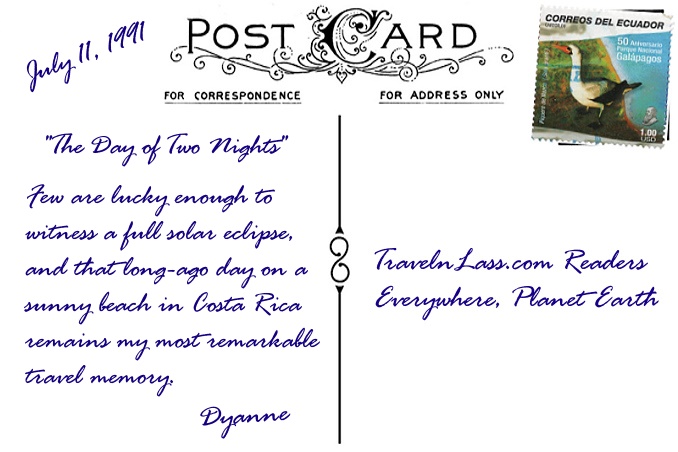 July 11, 1991
POST CARD
FOR CORRESPONDENCE
FOR ADDRESS ONLY
CORREOS DEL ECUADOR
50 Aniversario
Parque Nacional
Galápagos
1.00
USD
"The Day of Two Nights"
Few are lucky enough to
witness a full solar eclipse,
and that long-ago day on a
sunny beach in Costa Rica
remains my most remarkable
travel memory.
Dyanne
TravelnLass.com Readers
Everywhere, Planet Earth